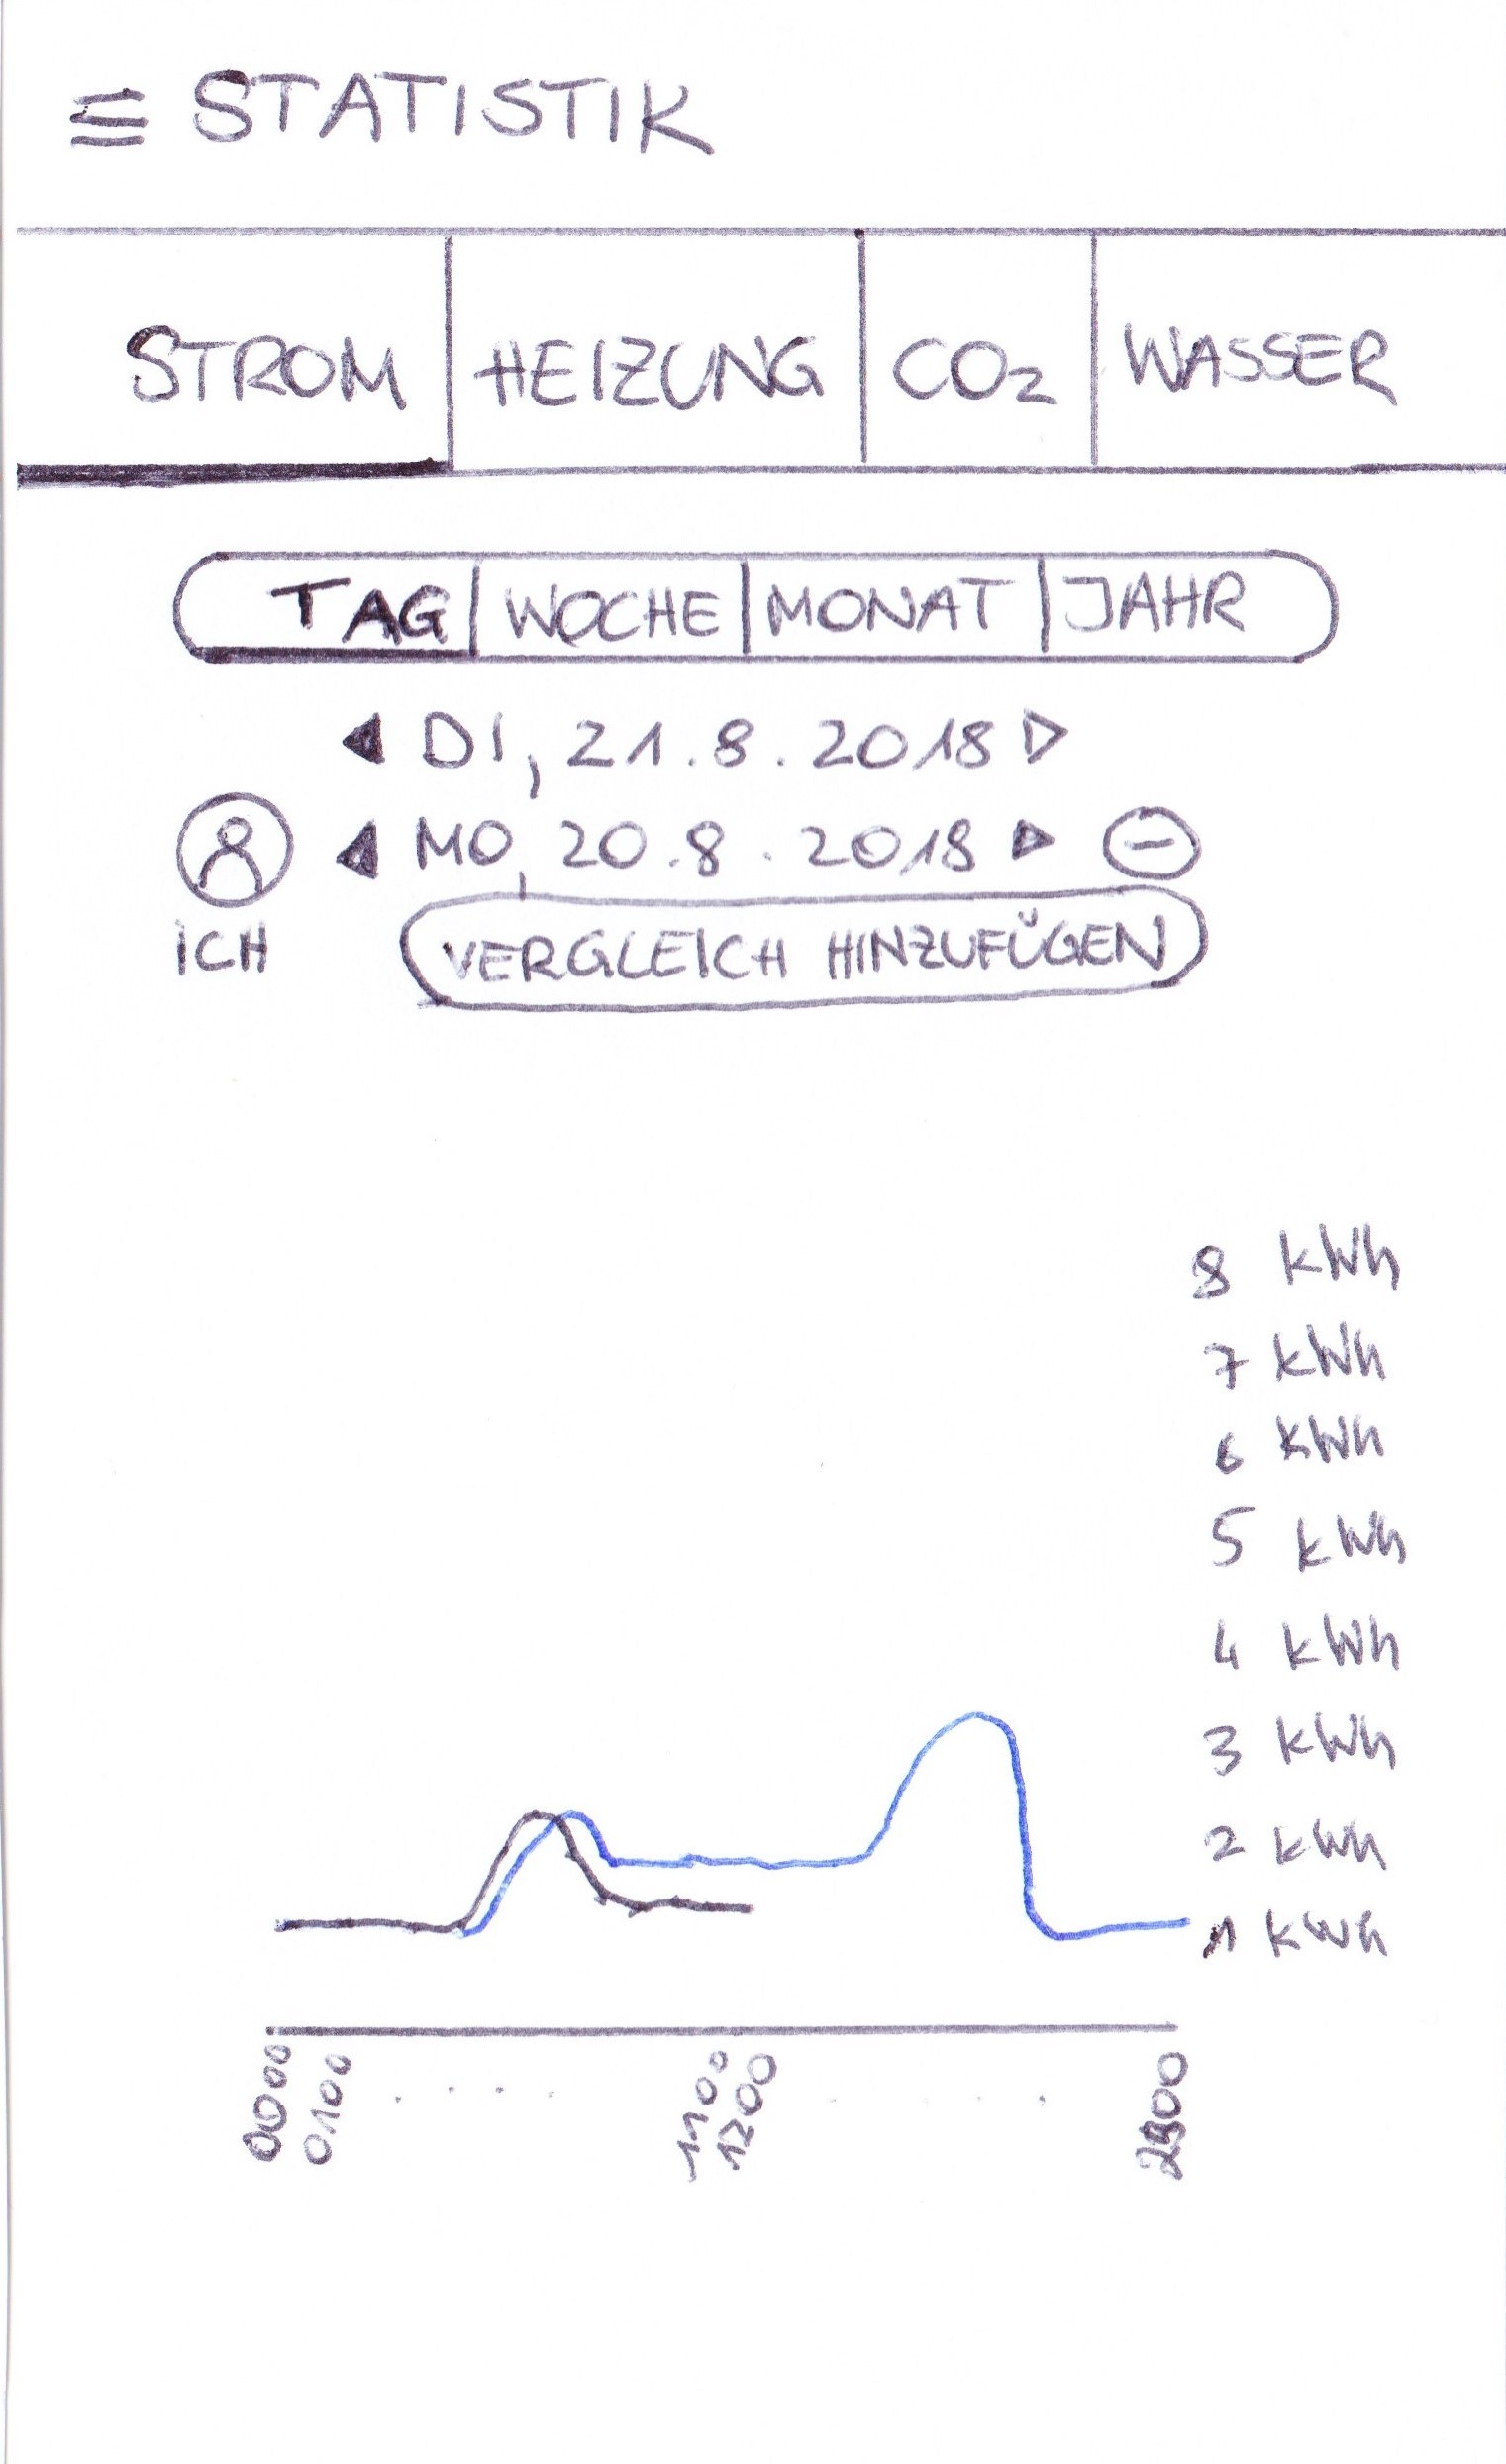 STATISTIK
STROM HEIZUNG CO₂ WASSER
TAG WOCHE MONAT JAHR
DI, 21.8.2018
MO, 20.8.2018
ICH
VERGLEICH HINZUFÜGEN
8 kWh
7 kWh
6 kWh
5 kWh
4 kWh
3 kWh
2 kWh
1 kWh
0000 0100 .... 1100 1200